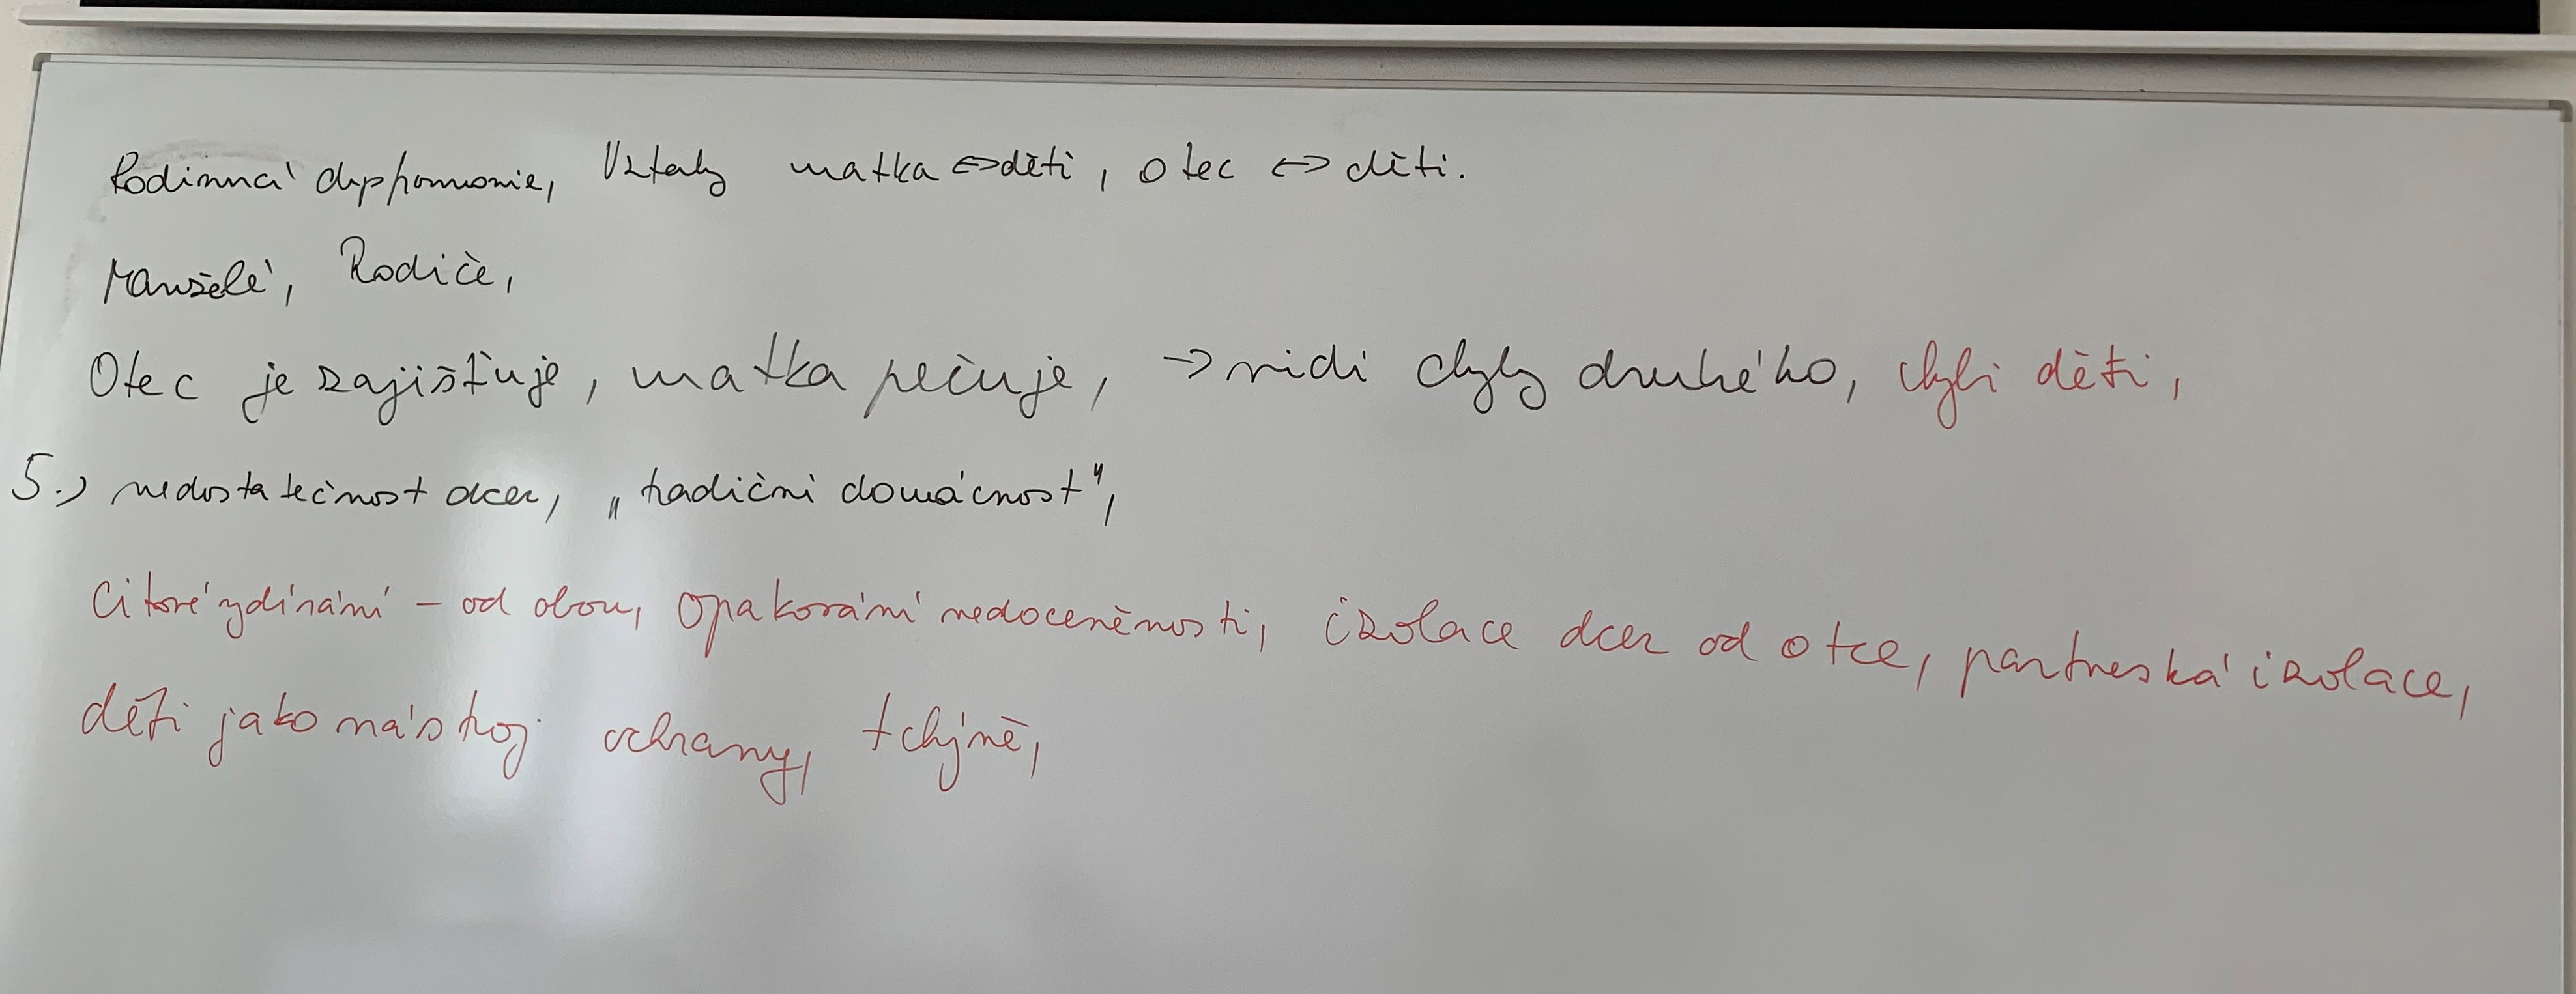 Rodinná dysharmonie, Vztahy matka ↔ děti, otec ↔ děti.
Manželé, Rodiče,
Otec je zajišťuje, matka pečuje, → vidí chyby druhého, chybí děti,
5.) nedostatečnost dcer, „tradiční domácnost",
Citové vydírání - od obou, opakování nedoceněnosti, izolace dcer od otce, partnerská izolace,
děti jako nástroj ochrany, tchýně,